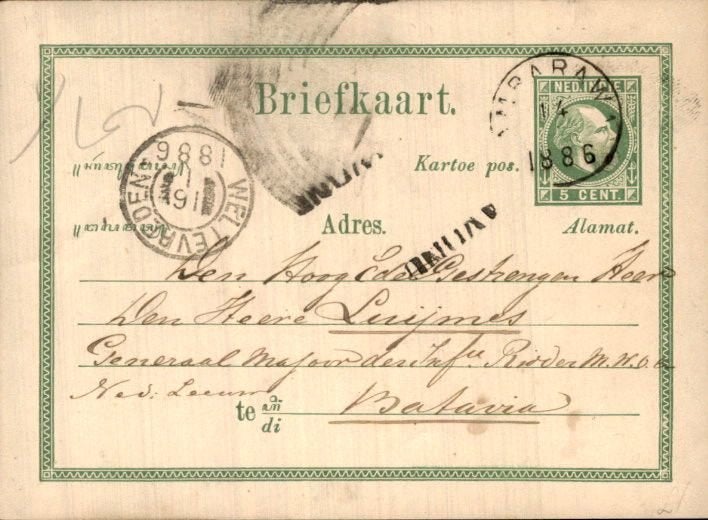 NED. INDIE
Briefkaart.
AMBARAWA
14
1886
Kartoe pos.
5 CENT.
WELTEVREDEN
1886
Adres.
Alamat.
Den Hoog Edel Gestrengen Heer
Den Heere Luijmes
Generaal Majoor der Infie Ridder M.W.O. en
Ned: Leeuw
te
di
Batavia